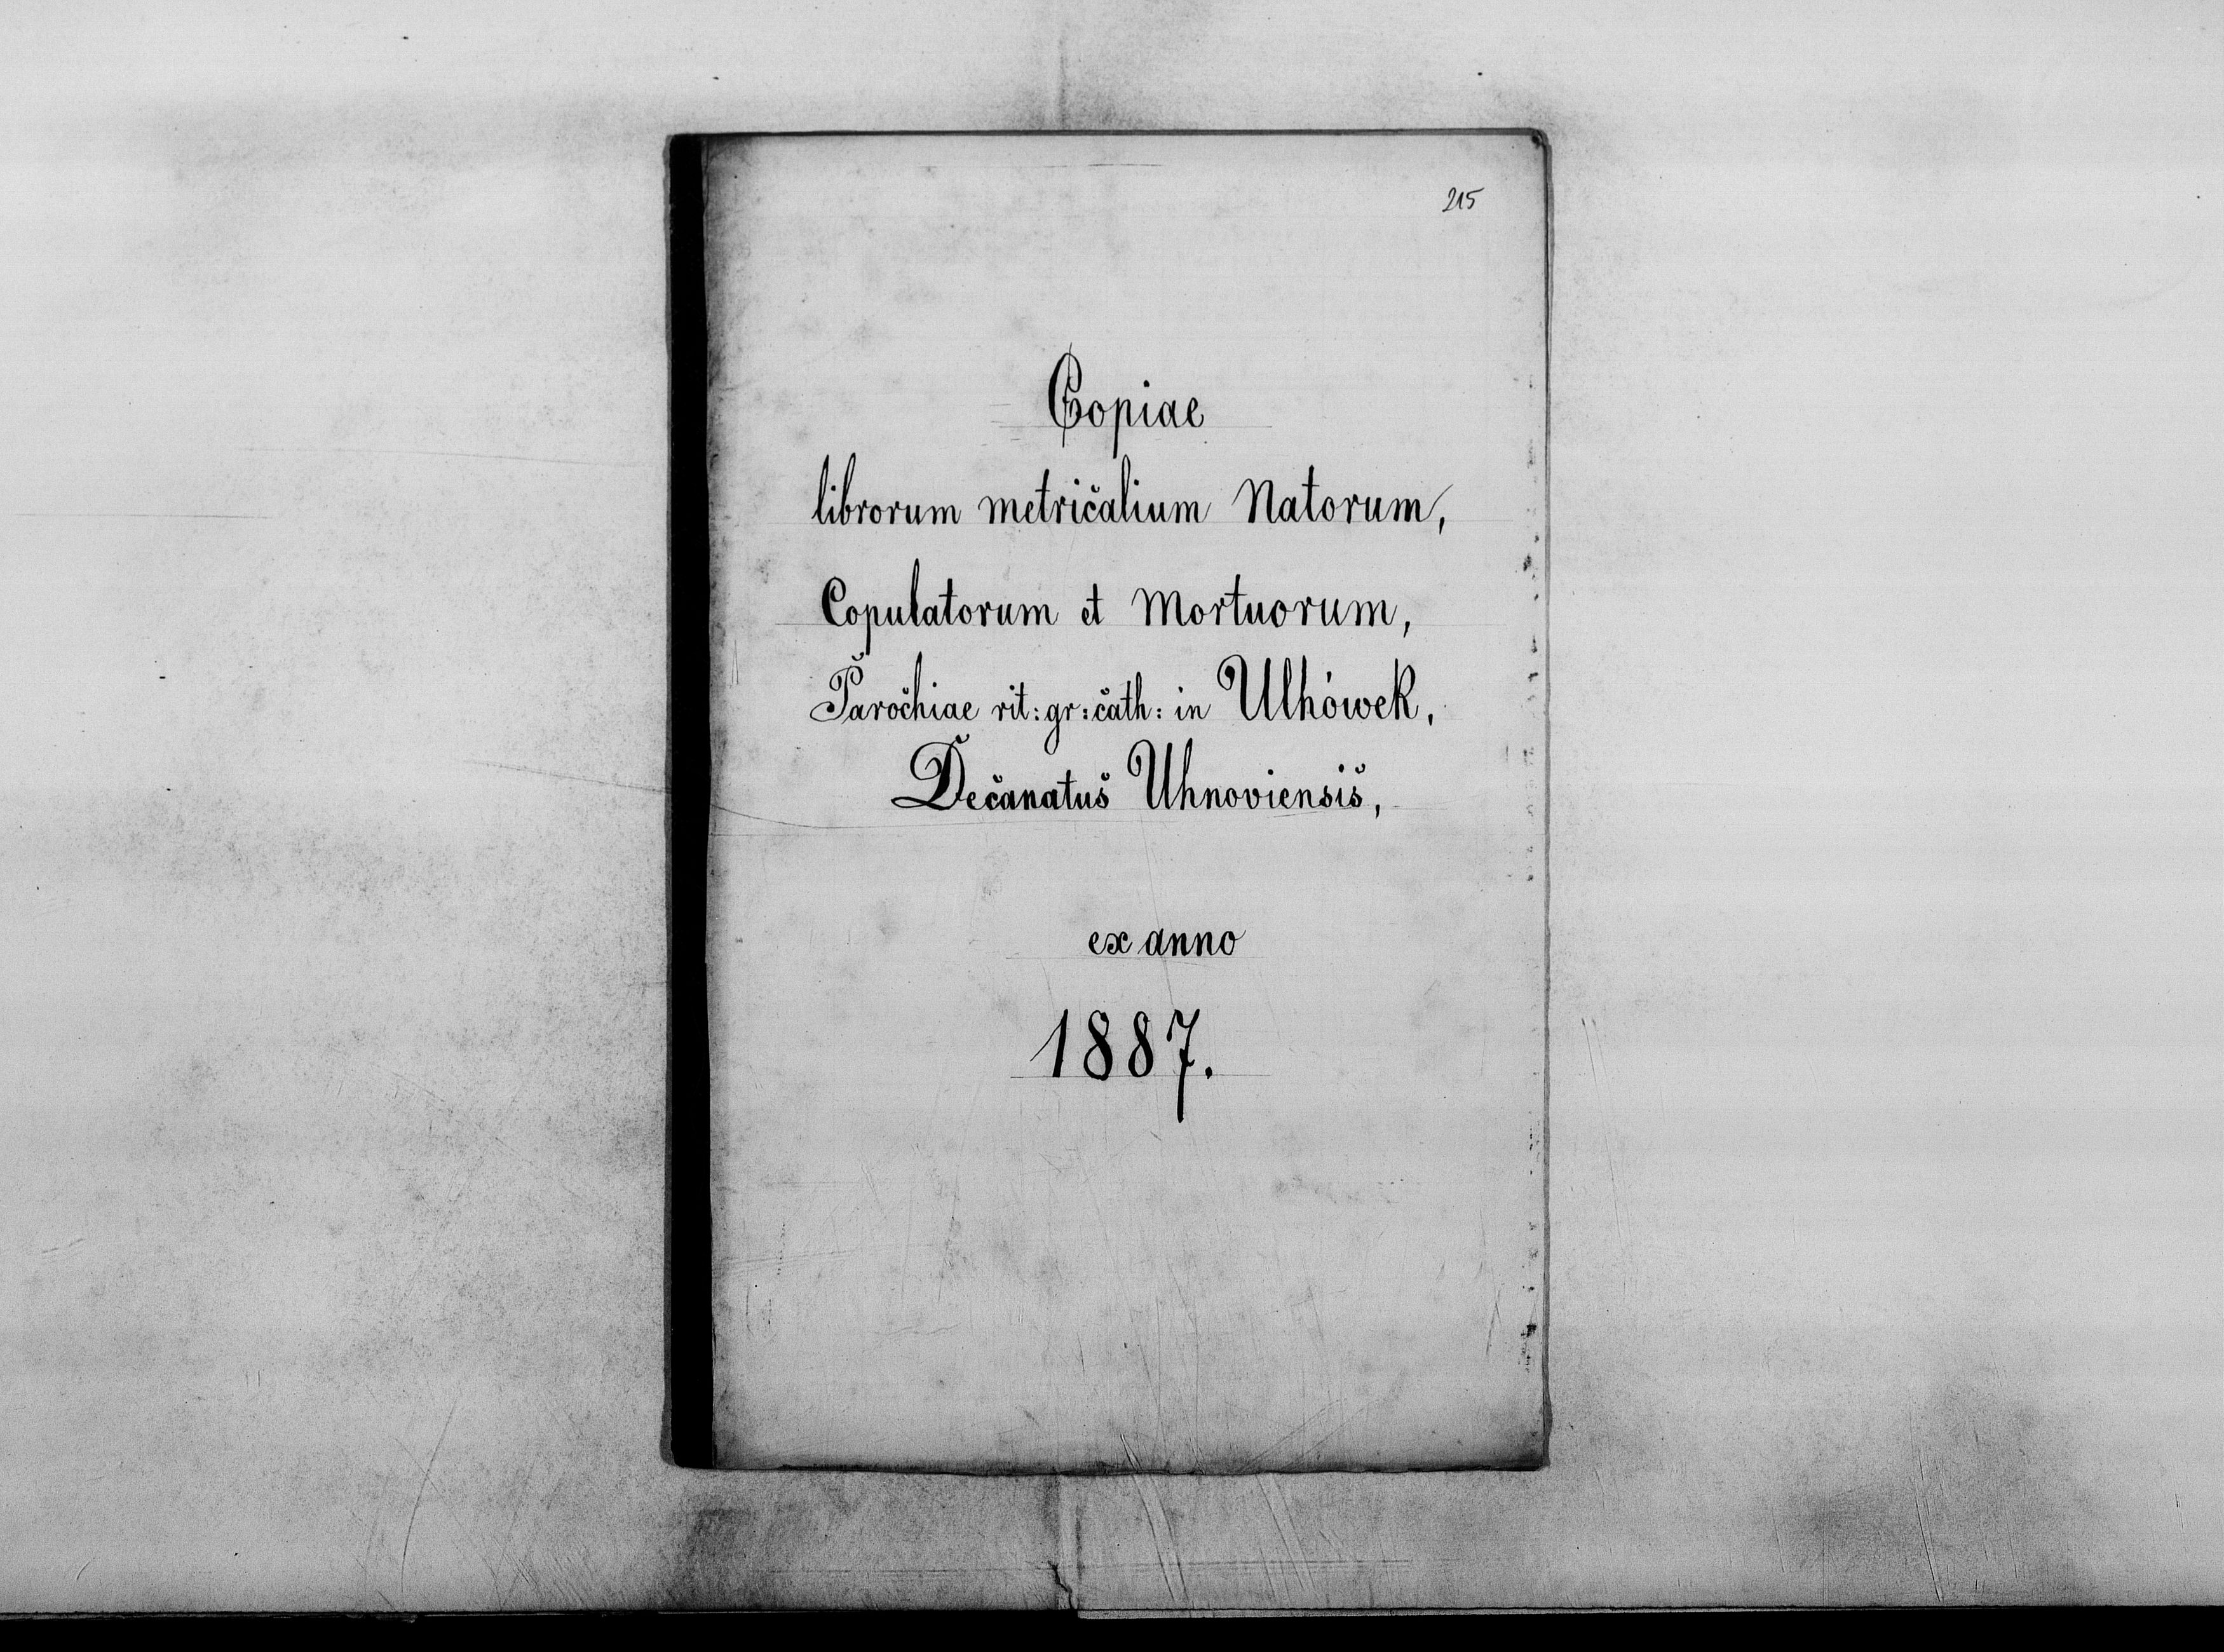 215
Copiae
librorum metričalium Natorum,
Copulatorum et Mortuorum,
Paročhiae rit: gr: čath: in Ulhówek,
Dečanatuš Uhnoviensiš,
ex anno
1887.